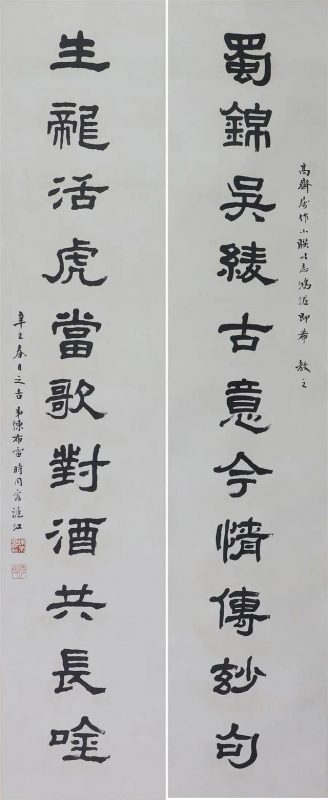 高齋屬作小聯以志鴻泥即希 教之
蜀錦吳綾古意今情傳玅句
生龍活虎當歌對酒共長唫
辛未春日之吉 弟陳布雷時同客滬江